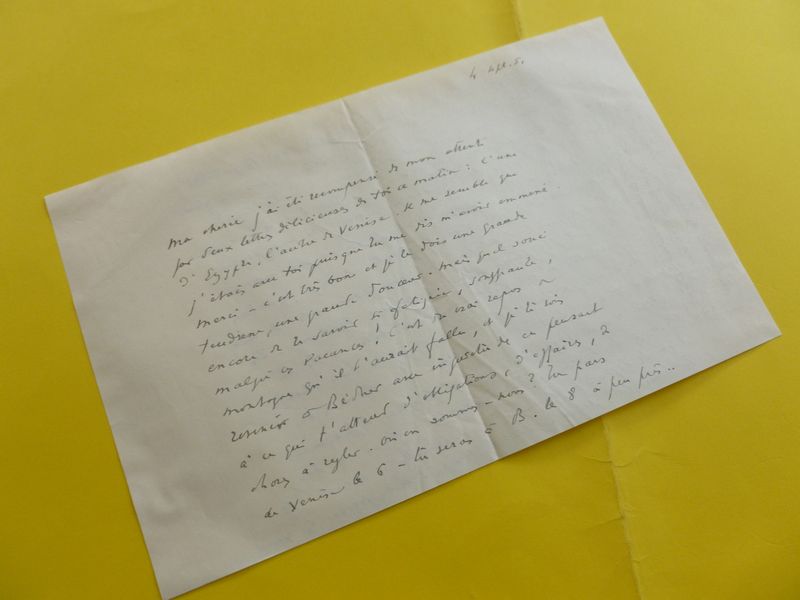 4 sept. 5.
ma cherie j'ai été recompensé de mon attente
par deux lettres délicieuses de toi ce matin : l'une
d'Egypte, l'autre de Venise. Il me semble que
j'étais avec toi puisque tu me dis m'avoir emmené.
merci - c'est très bon et je te dois une grande
tendresse, une grande douceur. mais quel souci
encore de te savoir si fatiguée, souffrante,
malgré ces vacances ! C'est du vrai repos
montagne qu'il t'aurait fallu, et je te vois
revenir avec inquiétude en pensant
à ce qui t'attend d'obligations, d'affaires, de
choses à régler. où en sommes-nous ? Tu pars
de Venise le 6 - tu seras à B. le 8 à peu près..